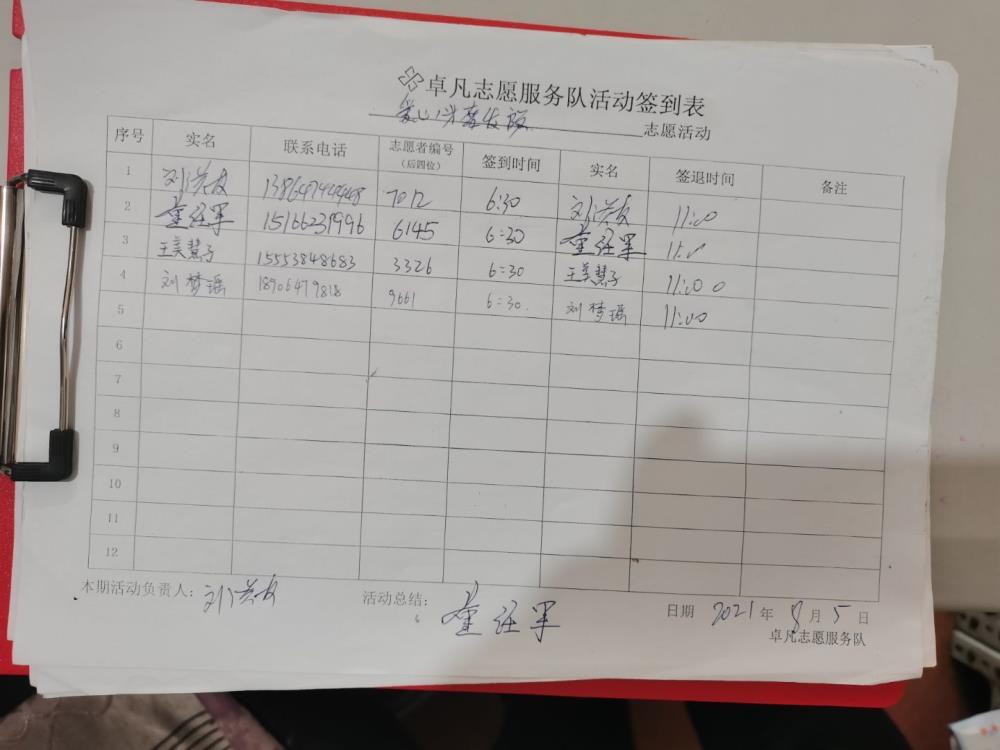 卓凡志愿服务队活动签到表
志愿活动
序号 实名 联系电话 志愿者编号（后四位） 签到时间 实名 签退时间 备注
1 刘洪友 7012 6:30 刘洪友 11:00
2 15166231996 6145 6:30 11:00
3 王美慧子 15553848683 3326 6:30 王美慧子 11:00
4 刘梦瑶 18906479818 9661 6:30. 刘梦瑶 11:00
5
6
7
8
9
10
11
12
本期活动负责人：刘洪友 活动总结： 日期 2021年8月5日
卓凡志愿服务队